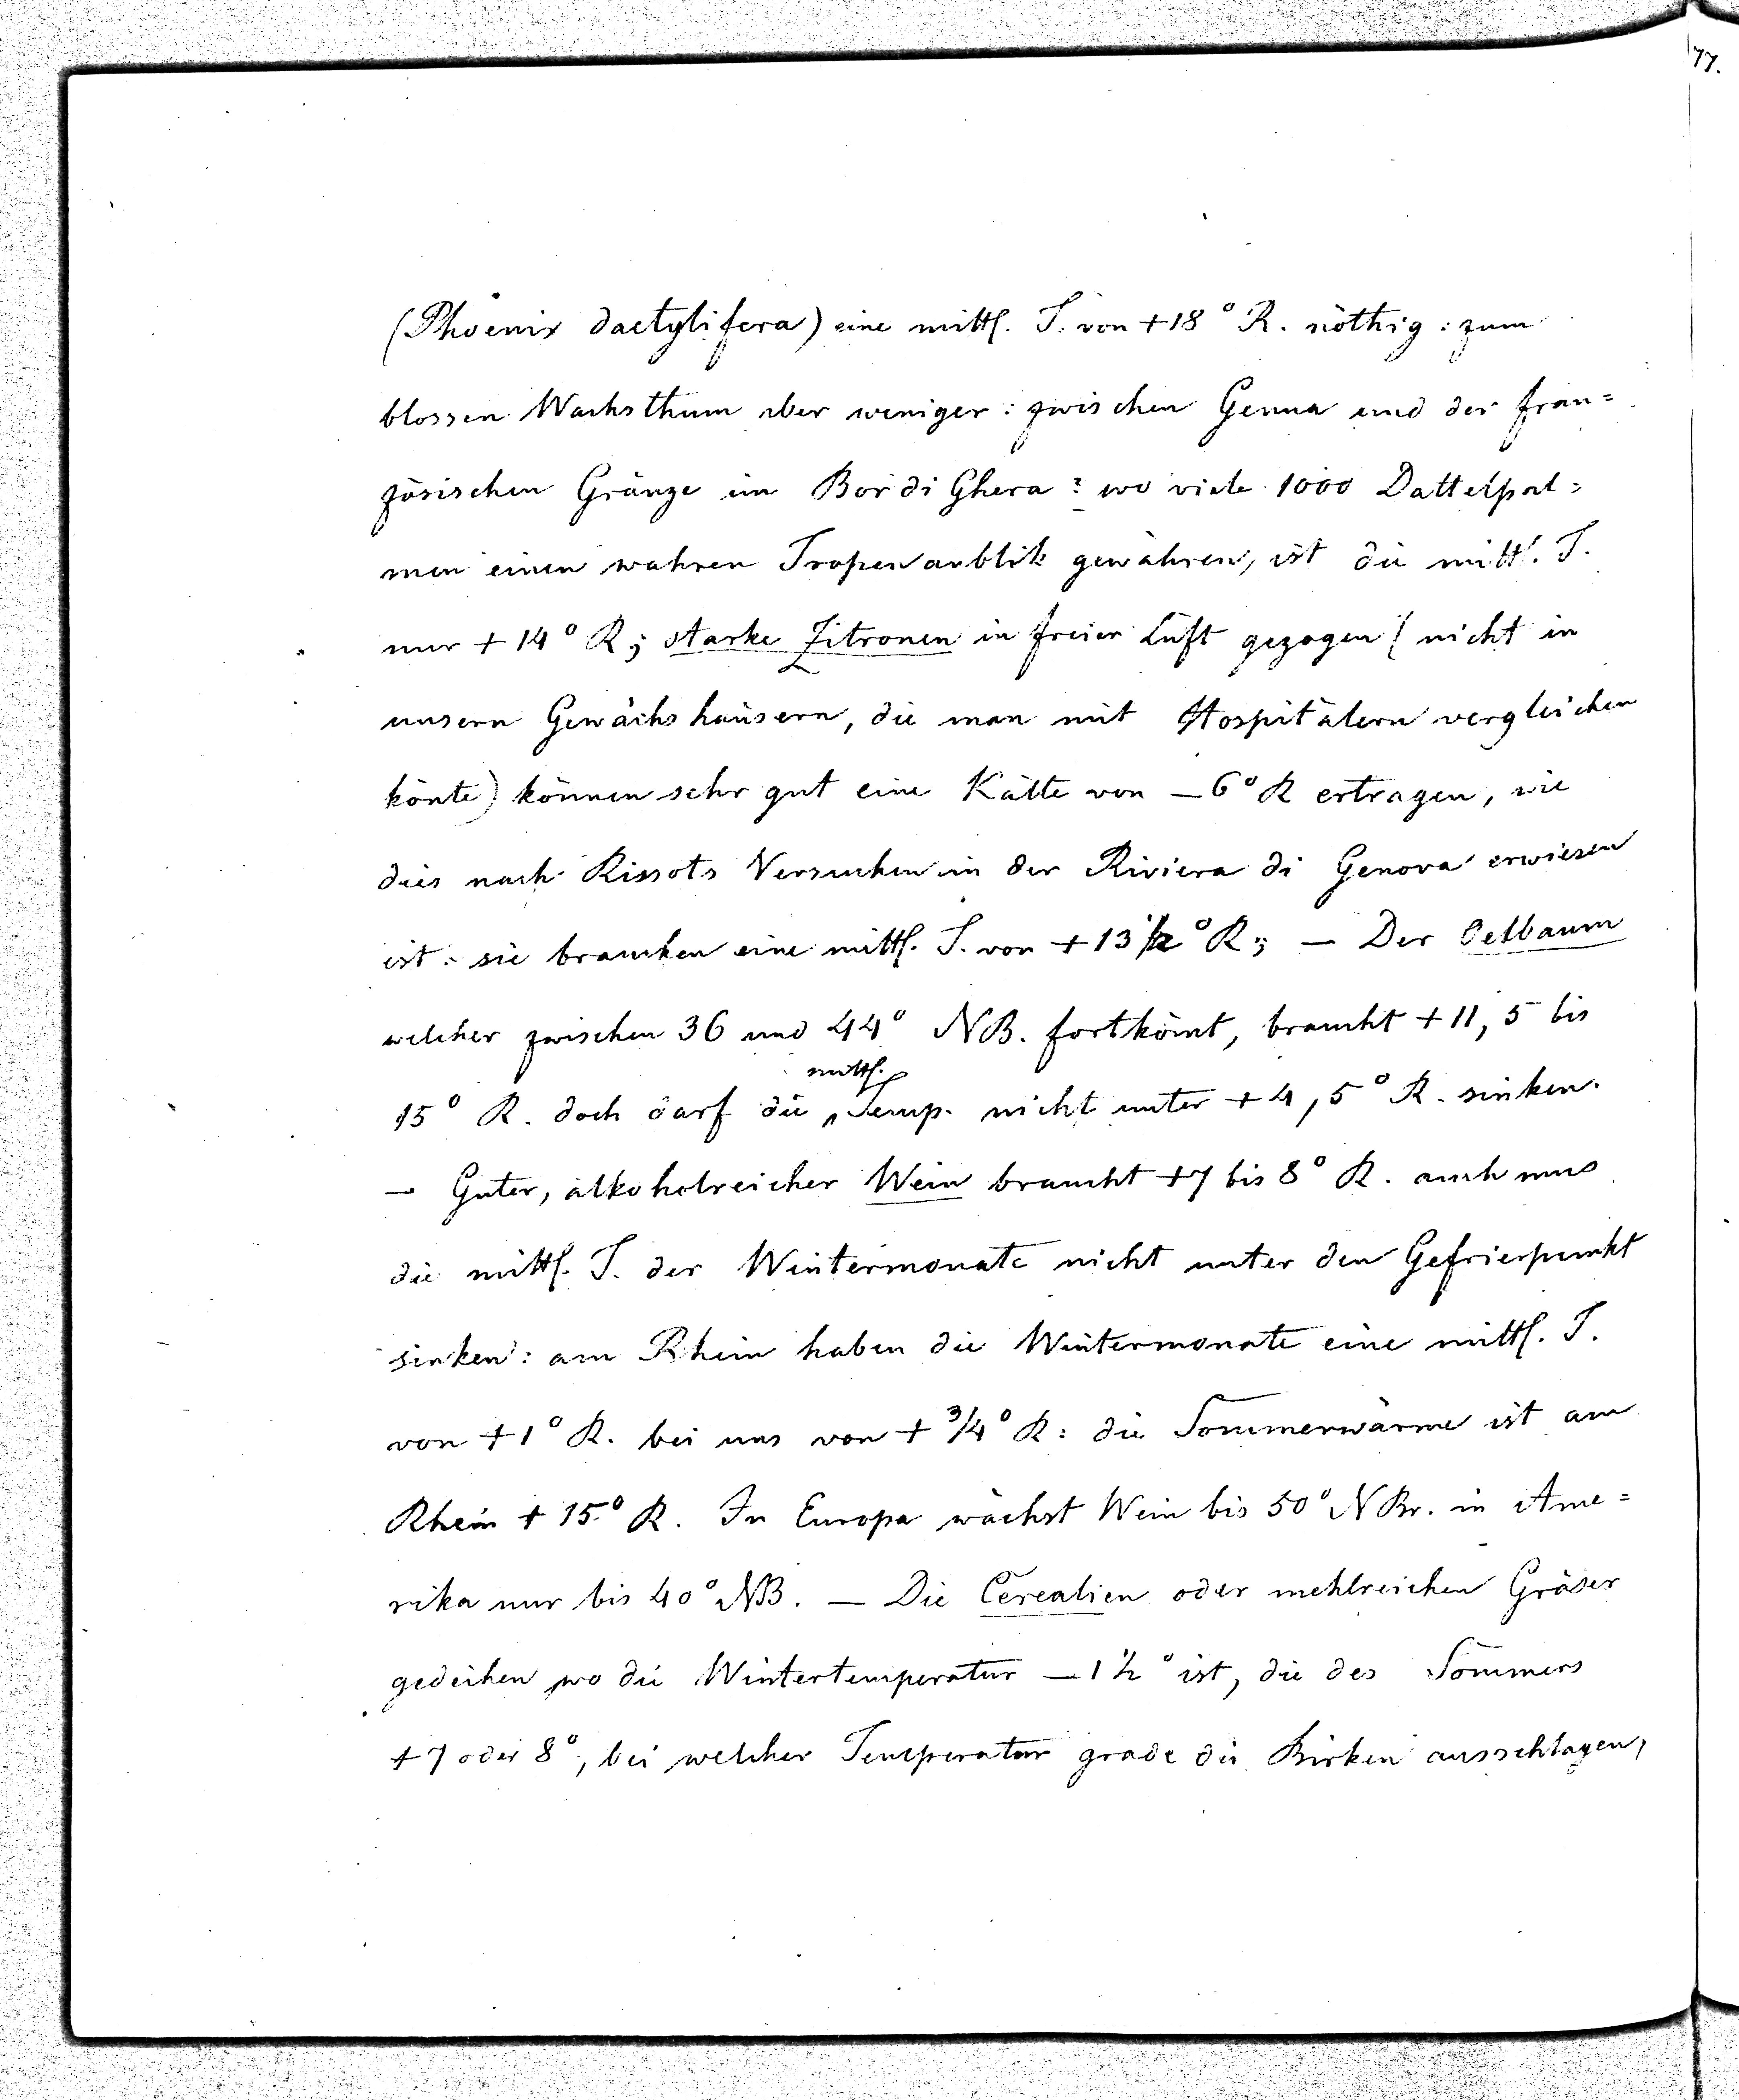 77.
(Phoenix dactylifera) eine mittl. T. von +18° R. nöthig: zum
blossen Wachsthum aber weniger: zwischen Genua und der fran=
zösischen Gränze im Bordi Ghera? wo viele 1000 Dattelpal=
men einen wahren Tropenanblik gewähren, ist die mittl. T.
nur +14° R; starke Zitronen in freier Luft gezogen (nicht in
unsern Gewächshäusern, die man mit Hospitälern vergleichen
könte) können sehr gut eine Kälte von –6° R ertragen, wie
dies nach Rissots Versuchen in der Riviera di Genova erwiesen
ist: sie brauchen eine mittl. T. von +13 1/2° R; – Der Oelbaum
welcher zwischen 36 und 44° NB. fortkömt, braucht +11,5 bis
15° R. doch darf die mittl. Temp. nicht unter +4,5° R. sinken.
– Guter, alkoholreicher Wein braucht +7 bis 8° R. auch mus
die mittl. T. der Wintermonate nicht unter den Gefrierpunkt
sinken: am Rhein haben die Wintermonate eine mittl. T.
von +1° R. bei uns von +3/4° R: die Sommerwärme ist am
Rhein +15° R. In Europa wächst Wein bis 50° NBr. in Ame=
rika nur bis 40° NB. – Die Cerealien oder mehlreichen Gräser
gedeihen wo die Wintertemperatur –1 1/2° ist, die des Sommers
+7 oder 8°, bei welcher Temperatur grade die Birken ausschlagen,